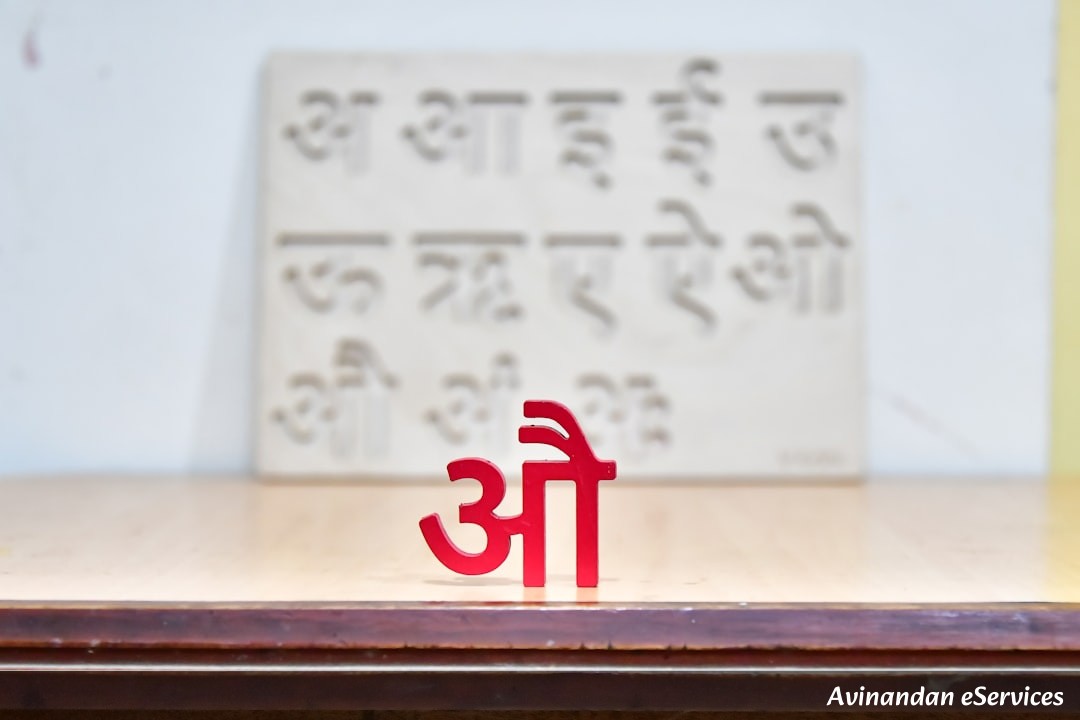 अ आ इ ई उ
ऊ ऋ ए ऐ ओ
औ अं अः
औ
Avinandan eServices